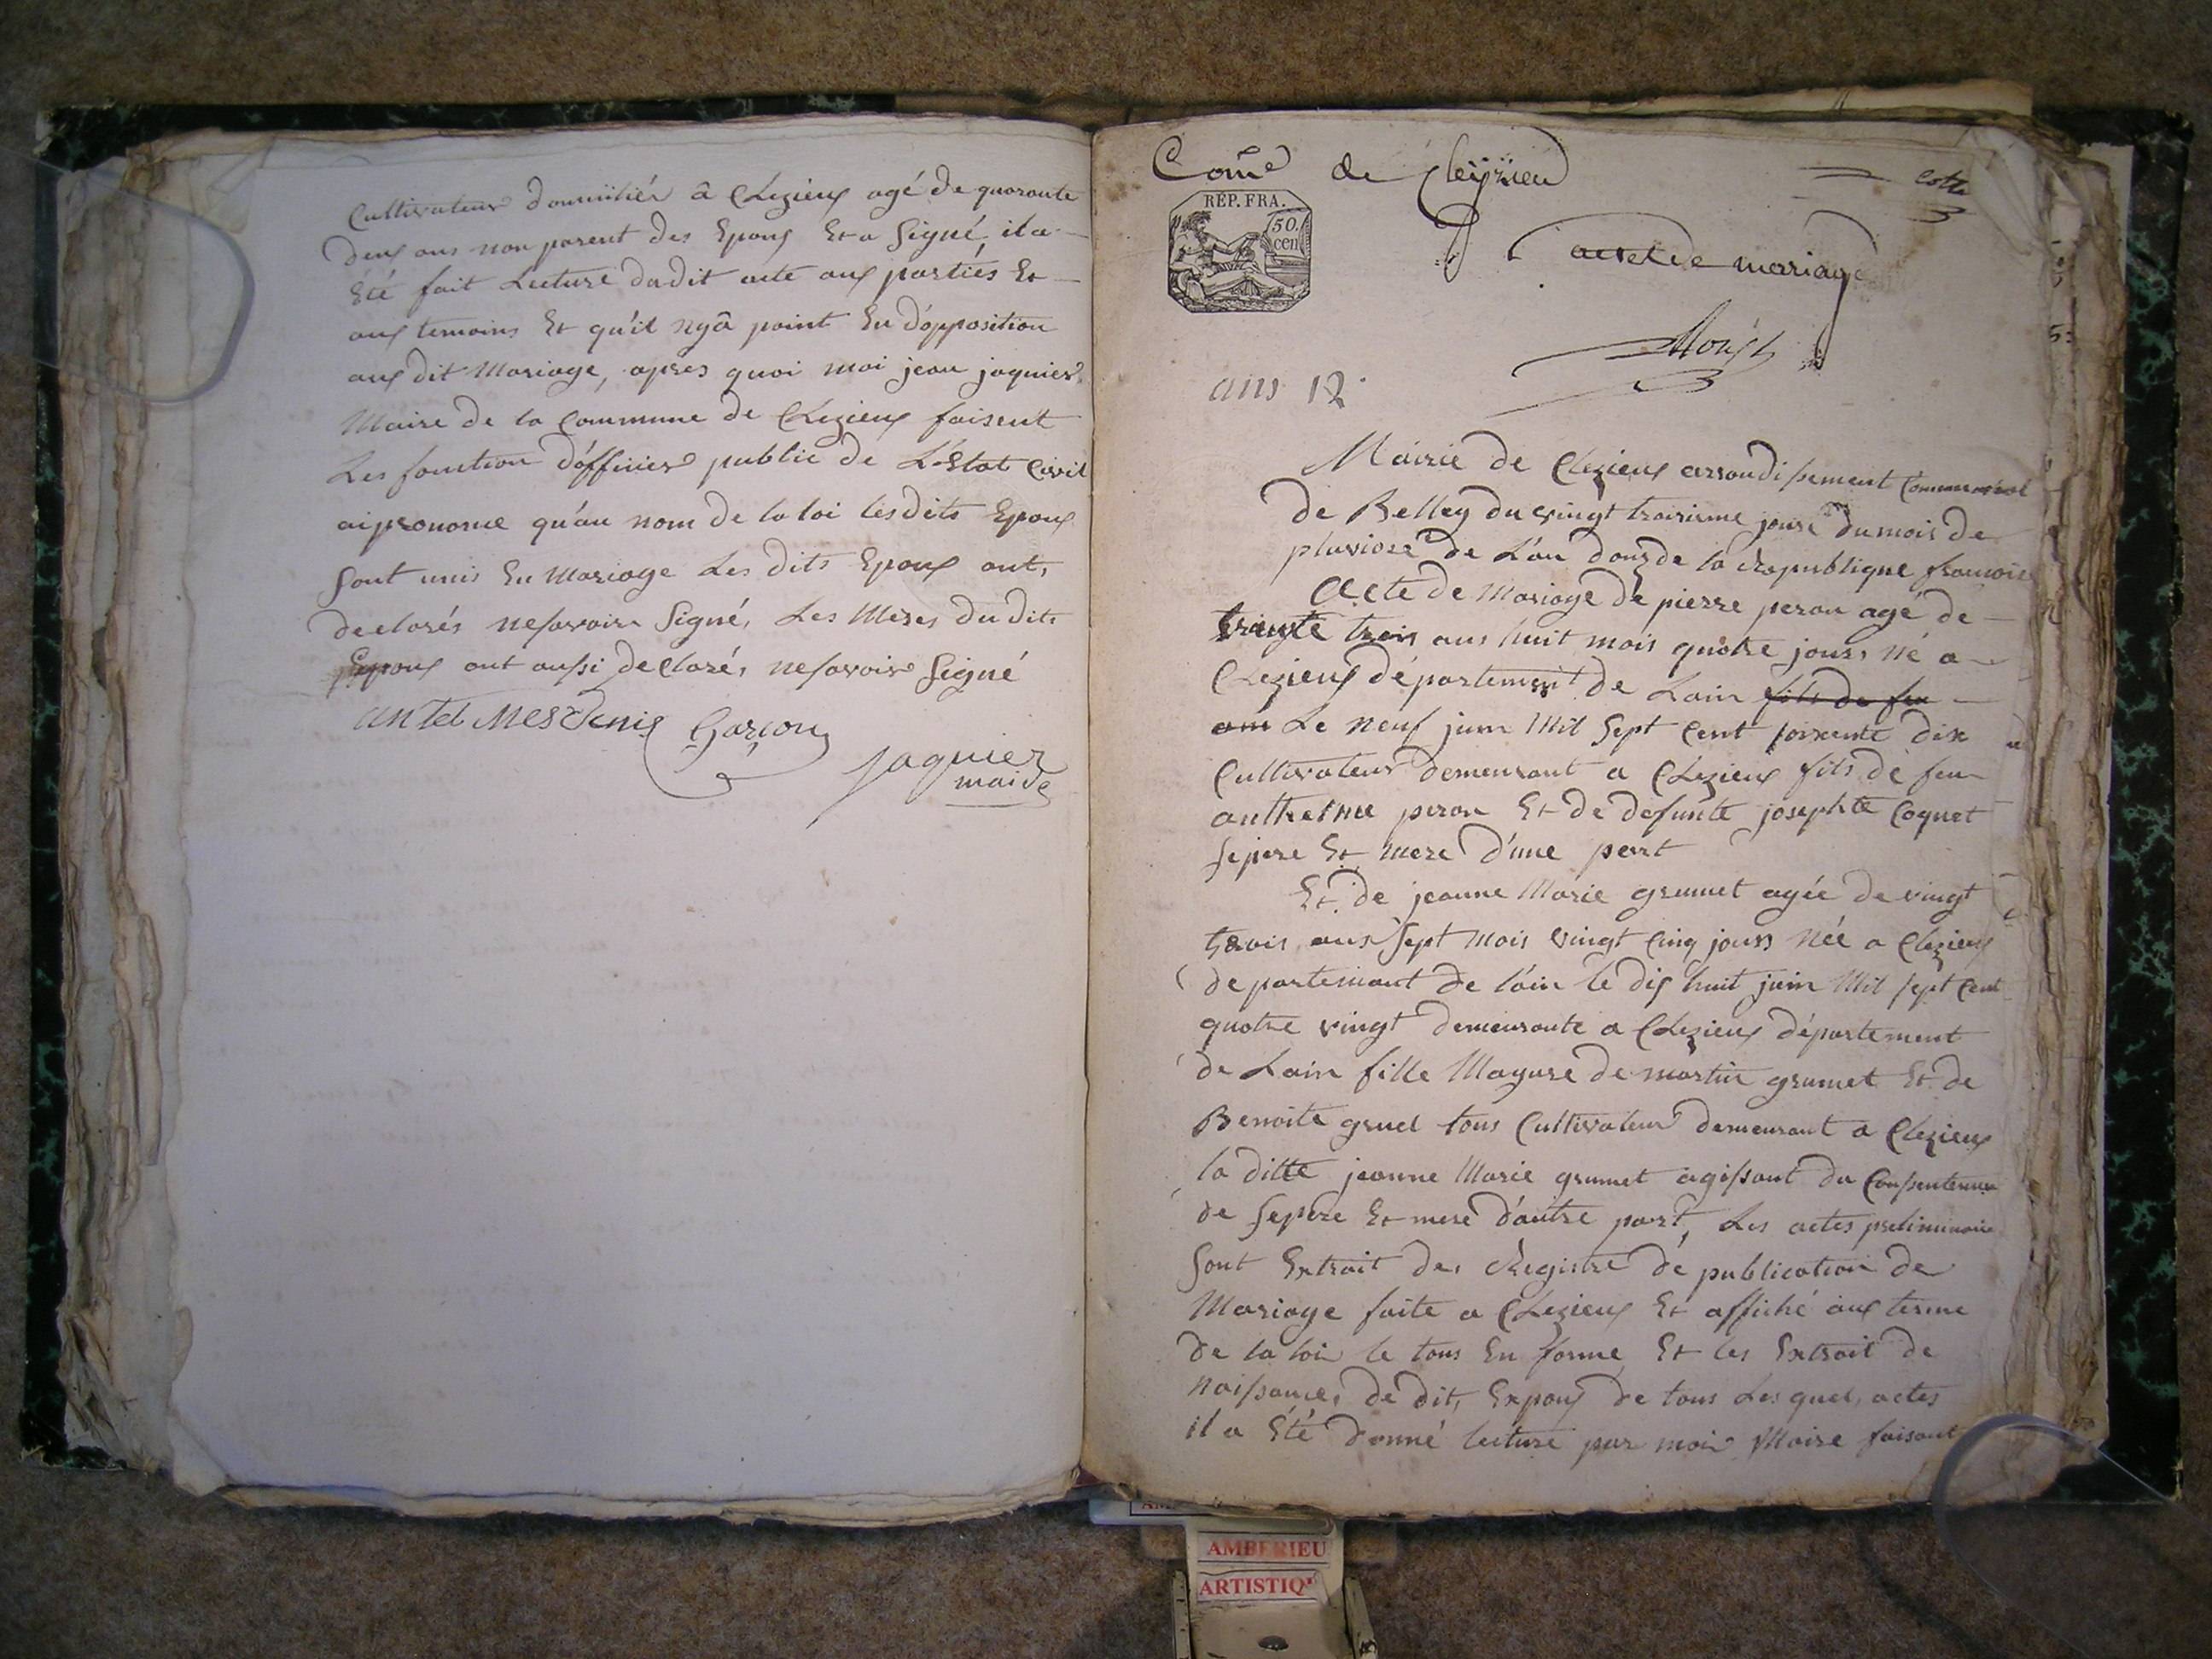 Cultivateur domiciliér â Clezieux agé de quarante
deux ans non parent des Epoux Et a Signé, il a
Été fait Lecture dudit acte aux partiés Et
aux temoins Et qu'il nyâ point Eu d'opposition
aux dit Mariage, apres quoi moi jean jaquier
Maire de la Commune de Clezieux faisent
Les fonction d'officier public de L'Etat Civil
ai prononcé qu'au nom de la loi lesdits Epoux
sont unis En Mariage Les dits Epoux ont,
declarés ne savoir Signé, Les Meres du dits
Epoux ont aussi declaré, ne savoir Signé
antel Mes denis Garçon
jaquier
maire
Come de Cleyzieu
cotte
RÉP. FRA.
50. cen
acte de mariage
ans 12
Mairie de Clezieux arrondissement Communal
de Belley du vingt troisieme jour du mois de
pluviose de L'an douz de la Republique francois
Acte de Mariage de pierre peron agé de
trente trois ans huit mois quatre jours né a
Clezieux département de Lain fils de feu
Le neuf juin Mil Sept Cent soixante dix
Cultivateur demeurant a Clezieux fils de feu
anthelme peron Et de defunte josephte Coquet
se pere Et mere d'une part
Et de jeanne Marie grumet agée de vingt
trois ans Sept mois vingt Cinq jours Née a Clezieux
departemant de l'ain le dix huit juin Mil sept Cent
quatre vingt demeurante a Clezieux département
de Lain fille Mayure de martin grumet Et de
Benoite gruel tous Cultivateur demeurant a Clezieux
la ditte jeanne Marie grumet agissant du Consentemen
de se pere Et mere d'autre part, Les actes preliminaire
Sont Extrait des Registre de publication de
Mariage faite a Clezieux Et affiché aux terme
de la loi le tous En forme Et les Extrait de
naissances de dit, Expoux de tous Les quel, actes
il a Été donné lecture par moi Maire faisant
AMBERIEU
ARTISTIQ